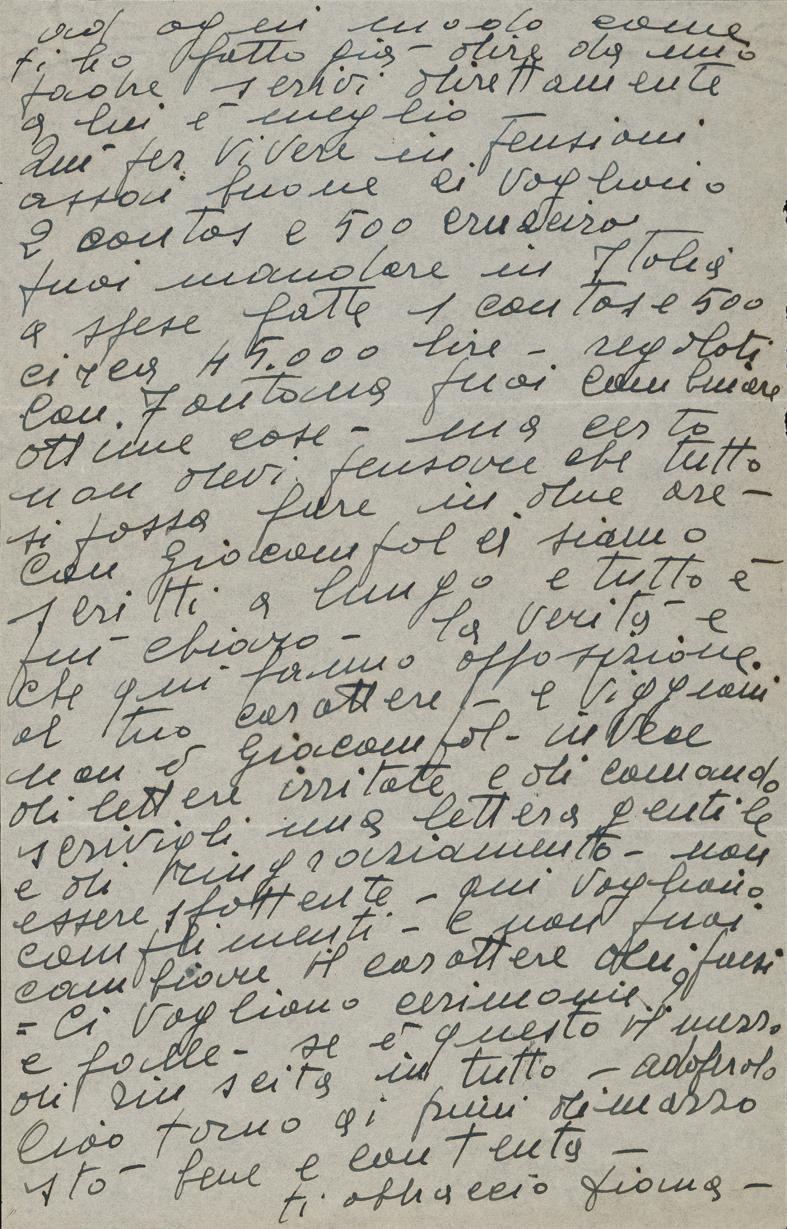 ad ogni modo come
ti ho fatto già dire da mio
padre scrivi direttamente
a lui è meglio
Qui per vivere in pensioni
assai buone ci vogliono
2 contos e 500 cruzeiro
puoi mandare in Italia
a spese fatte 1 contos e 500
circa 45.000 lire - regolati
Con Fontana puoi combinare
ottime cose - ma certo
non devi pensare che tutto
si possa fare in due ore -
Con Giacompol ci siamo
scritti a lungo e tutto è
più chiaro - la verità è
che qui fanno opposizione
al tuo carattere - e Viggiani
non è Giacompol - invece
di lettere irritate e di comando
scrivigli una lettera gentile
e di ringraziamento - non
essere sfottente - qui vogliono
complimenti - e non puoi
cambiare il carattere dei paesi
= Ci vogliono cerimonie?
e falle - se è questo il mezzo
di riuscita in tutto - adopralo
Ciao torno ai primi di marzo
sto bene e contenta -
ti abbraccio Diana -